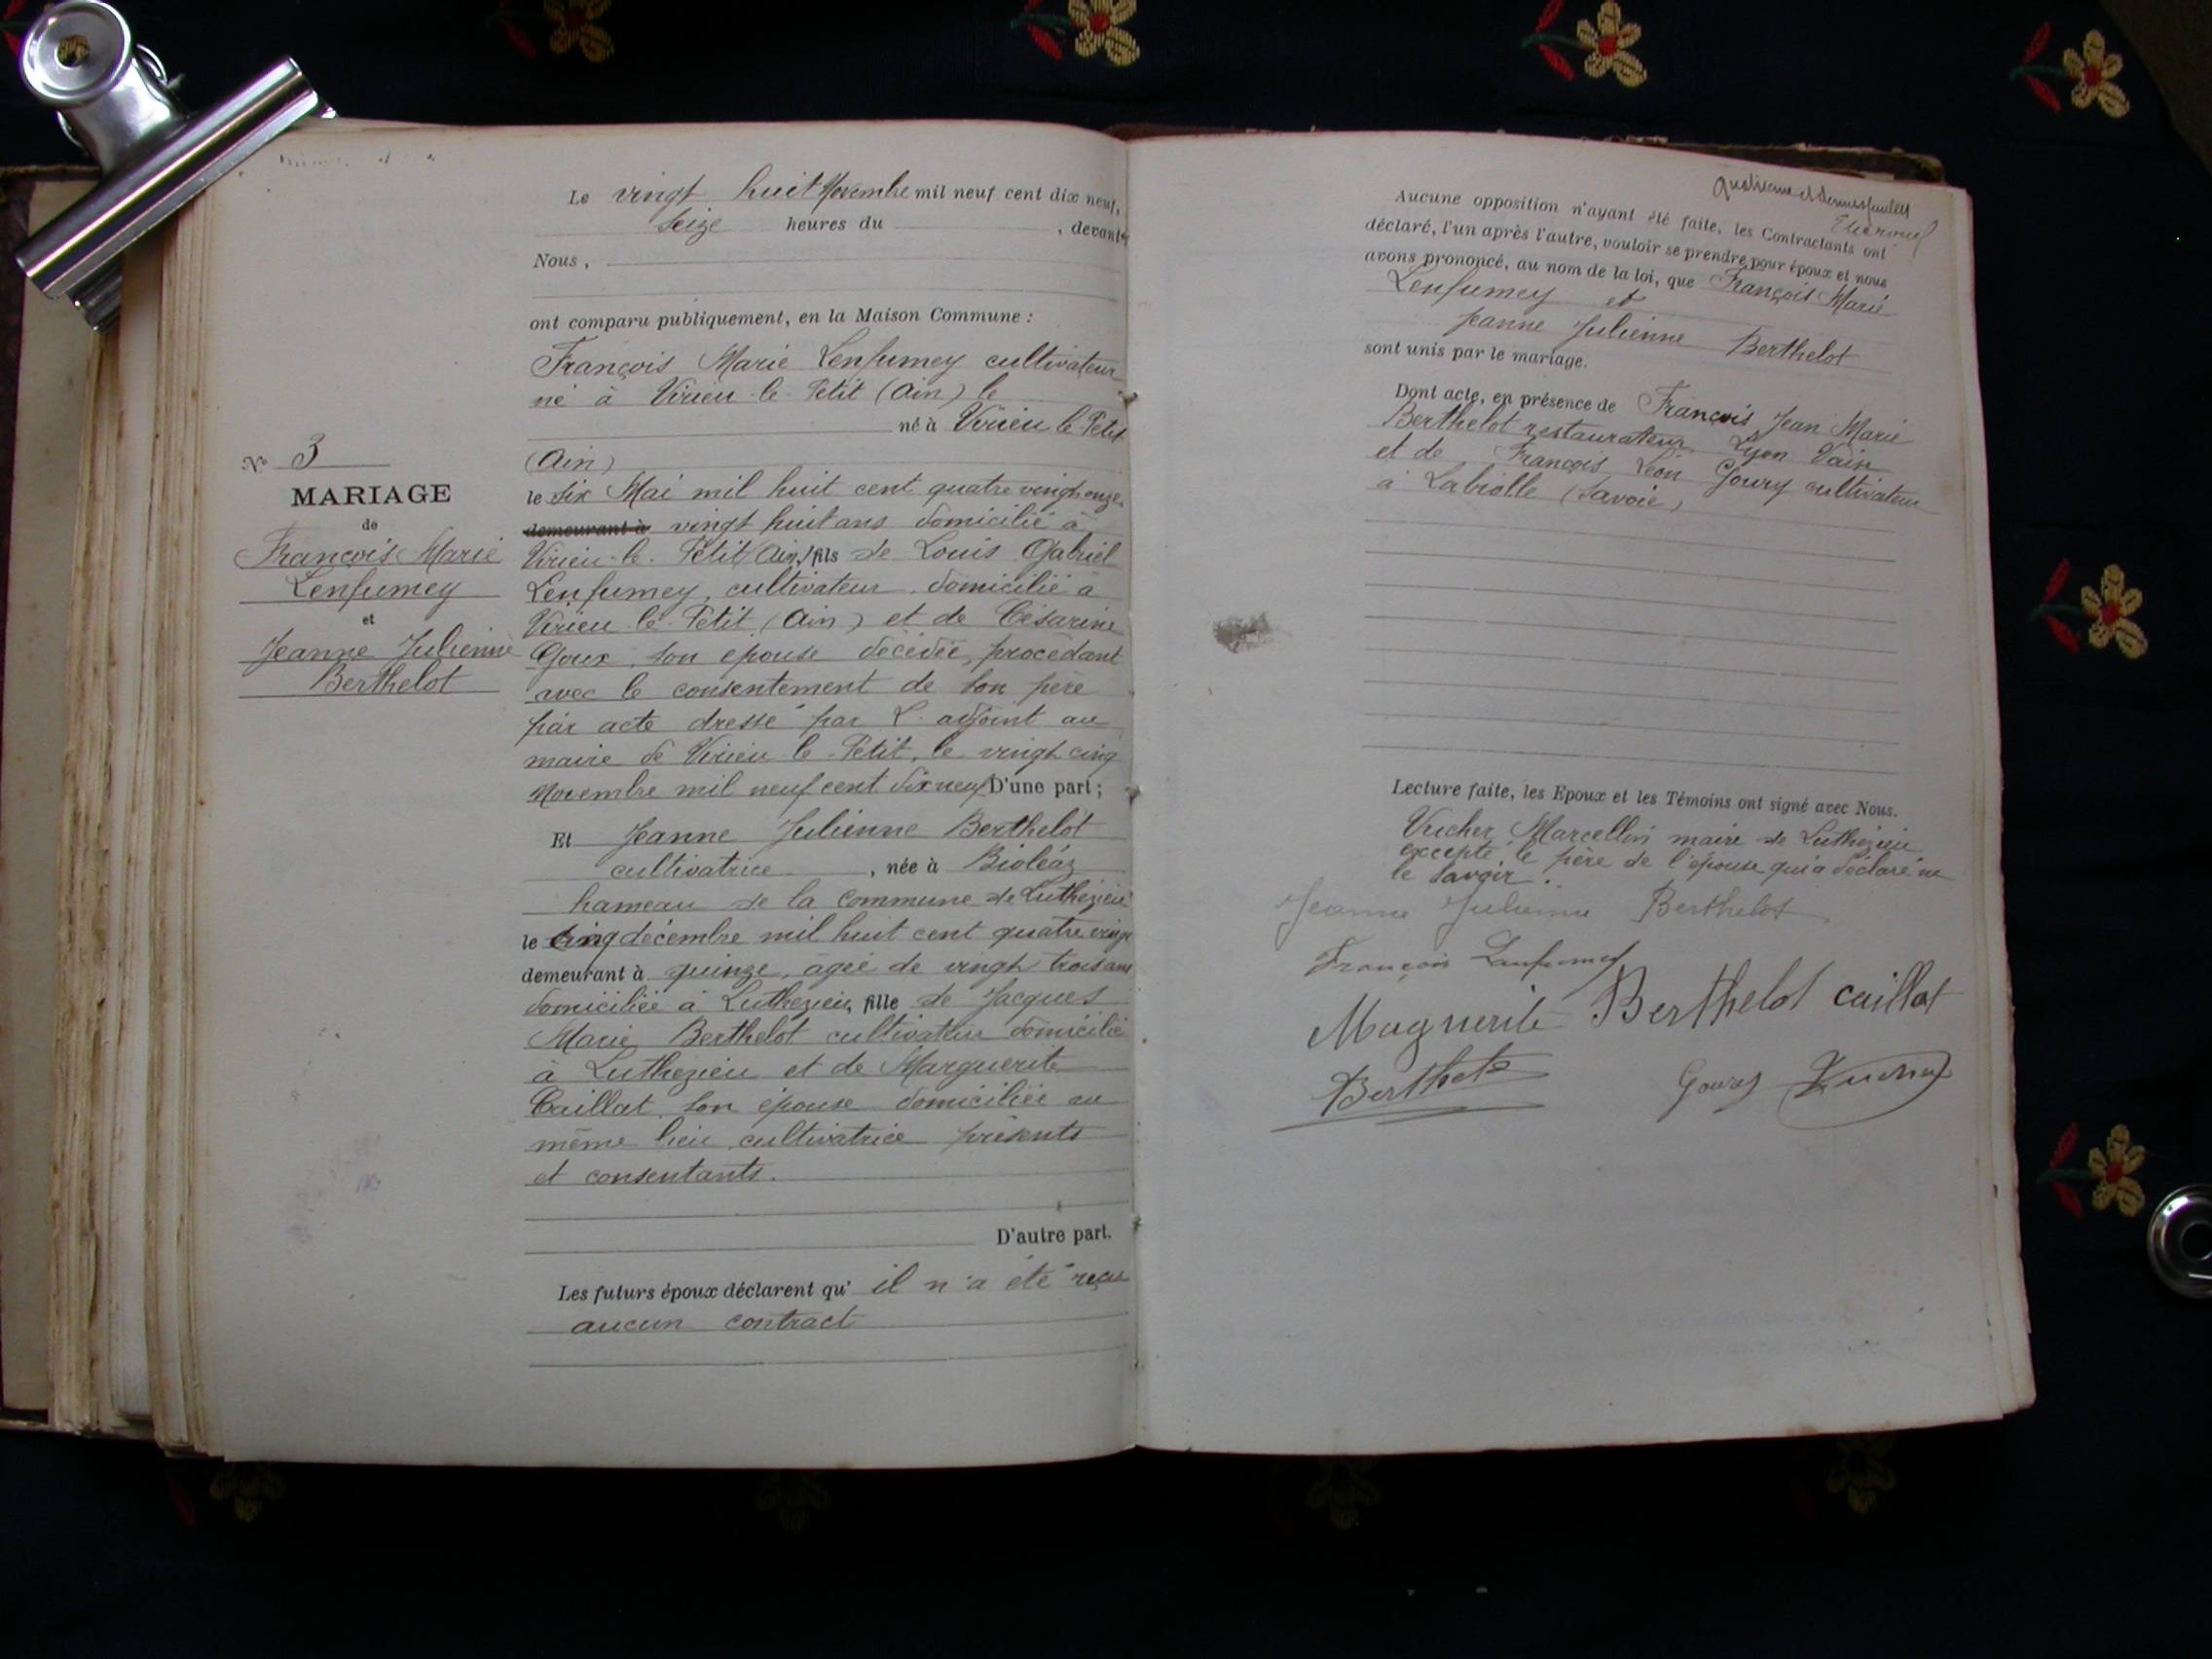 Le vingt huit Novembre mil neuf cent dix neuf,
seize heures du , devant
Nous ,
ont comparu publiquement, en la Maison Commune :
François Marie Lenfumey cultivateur
né à Virieu-le-Petit (Ain) le
né à Virieu le Petit
(Ain)
le six Mai mil huit cent quatre vingt onze
demeurant à vingt huit ans domicilié à
Virieu-le-Petit (Ain) fils de Louis Gabriel
Lenfumey, cultivateur domicilié à
Virieu-le-Petit (Ain) et de Césarine
Goux, son épouse décédée, procédant
avec le consentement de son père
par acte dressé par L. adjoint au
maire de Virieu-le-Petit, le vingt cinq
Novembre mil neuf cent dix neuf D'une part ;
Et Jeanne Julienne Berthelot
cultivatrice , née à Bioléaz
hameau de la commune de Luthézieu
le cinq décembre mil huit cent quatre vingt
demeurant à quinze, agée de vingt trois ans
domiciliée à Luthézieu, fille de Jacques
Marie Berthelot cultivateur domicilié
à Luthézieu et de Marguerite
Caillat, son épouse domiciliée au
même lieu, cultivatrice présents
et consentants.
D'autre part.
Les futurs époux déclarent qu' il n'a été reçu
aucun contract
N° 3
MARIAGE
de
François Marie
Lenfumey
et
Jeanne Julienne
Berthelot
Quatrième et dernier feuillet
Aucune opposition n'ayant été faite, les Contractants ont
déclaré, l'un après l'autre, vouloir se prendre pour époux et nous
avons prononcé, au nom de la loi, que François Marie
Lenfumey et
Jeanne Julienne Berthelot
sont unis par le mariage.
Dont acte, en présence de François Jean Marie
Berthelot restaurateur Lyon Vaise
et de François Léon Goury cultivateur
à Labiolle (Savoie)
Lecture faite, les Epoux et les Témoins ont signé avec Nous.
Vucher Marcellin maire de Luthézieu
excepté le père de l'épouse qui a déclaré ne
le savoir.
Jeanne Julienne Berthelot
François Lenfumey
Marguerite Berthelot caillat
Berthelot
Goury Vucher